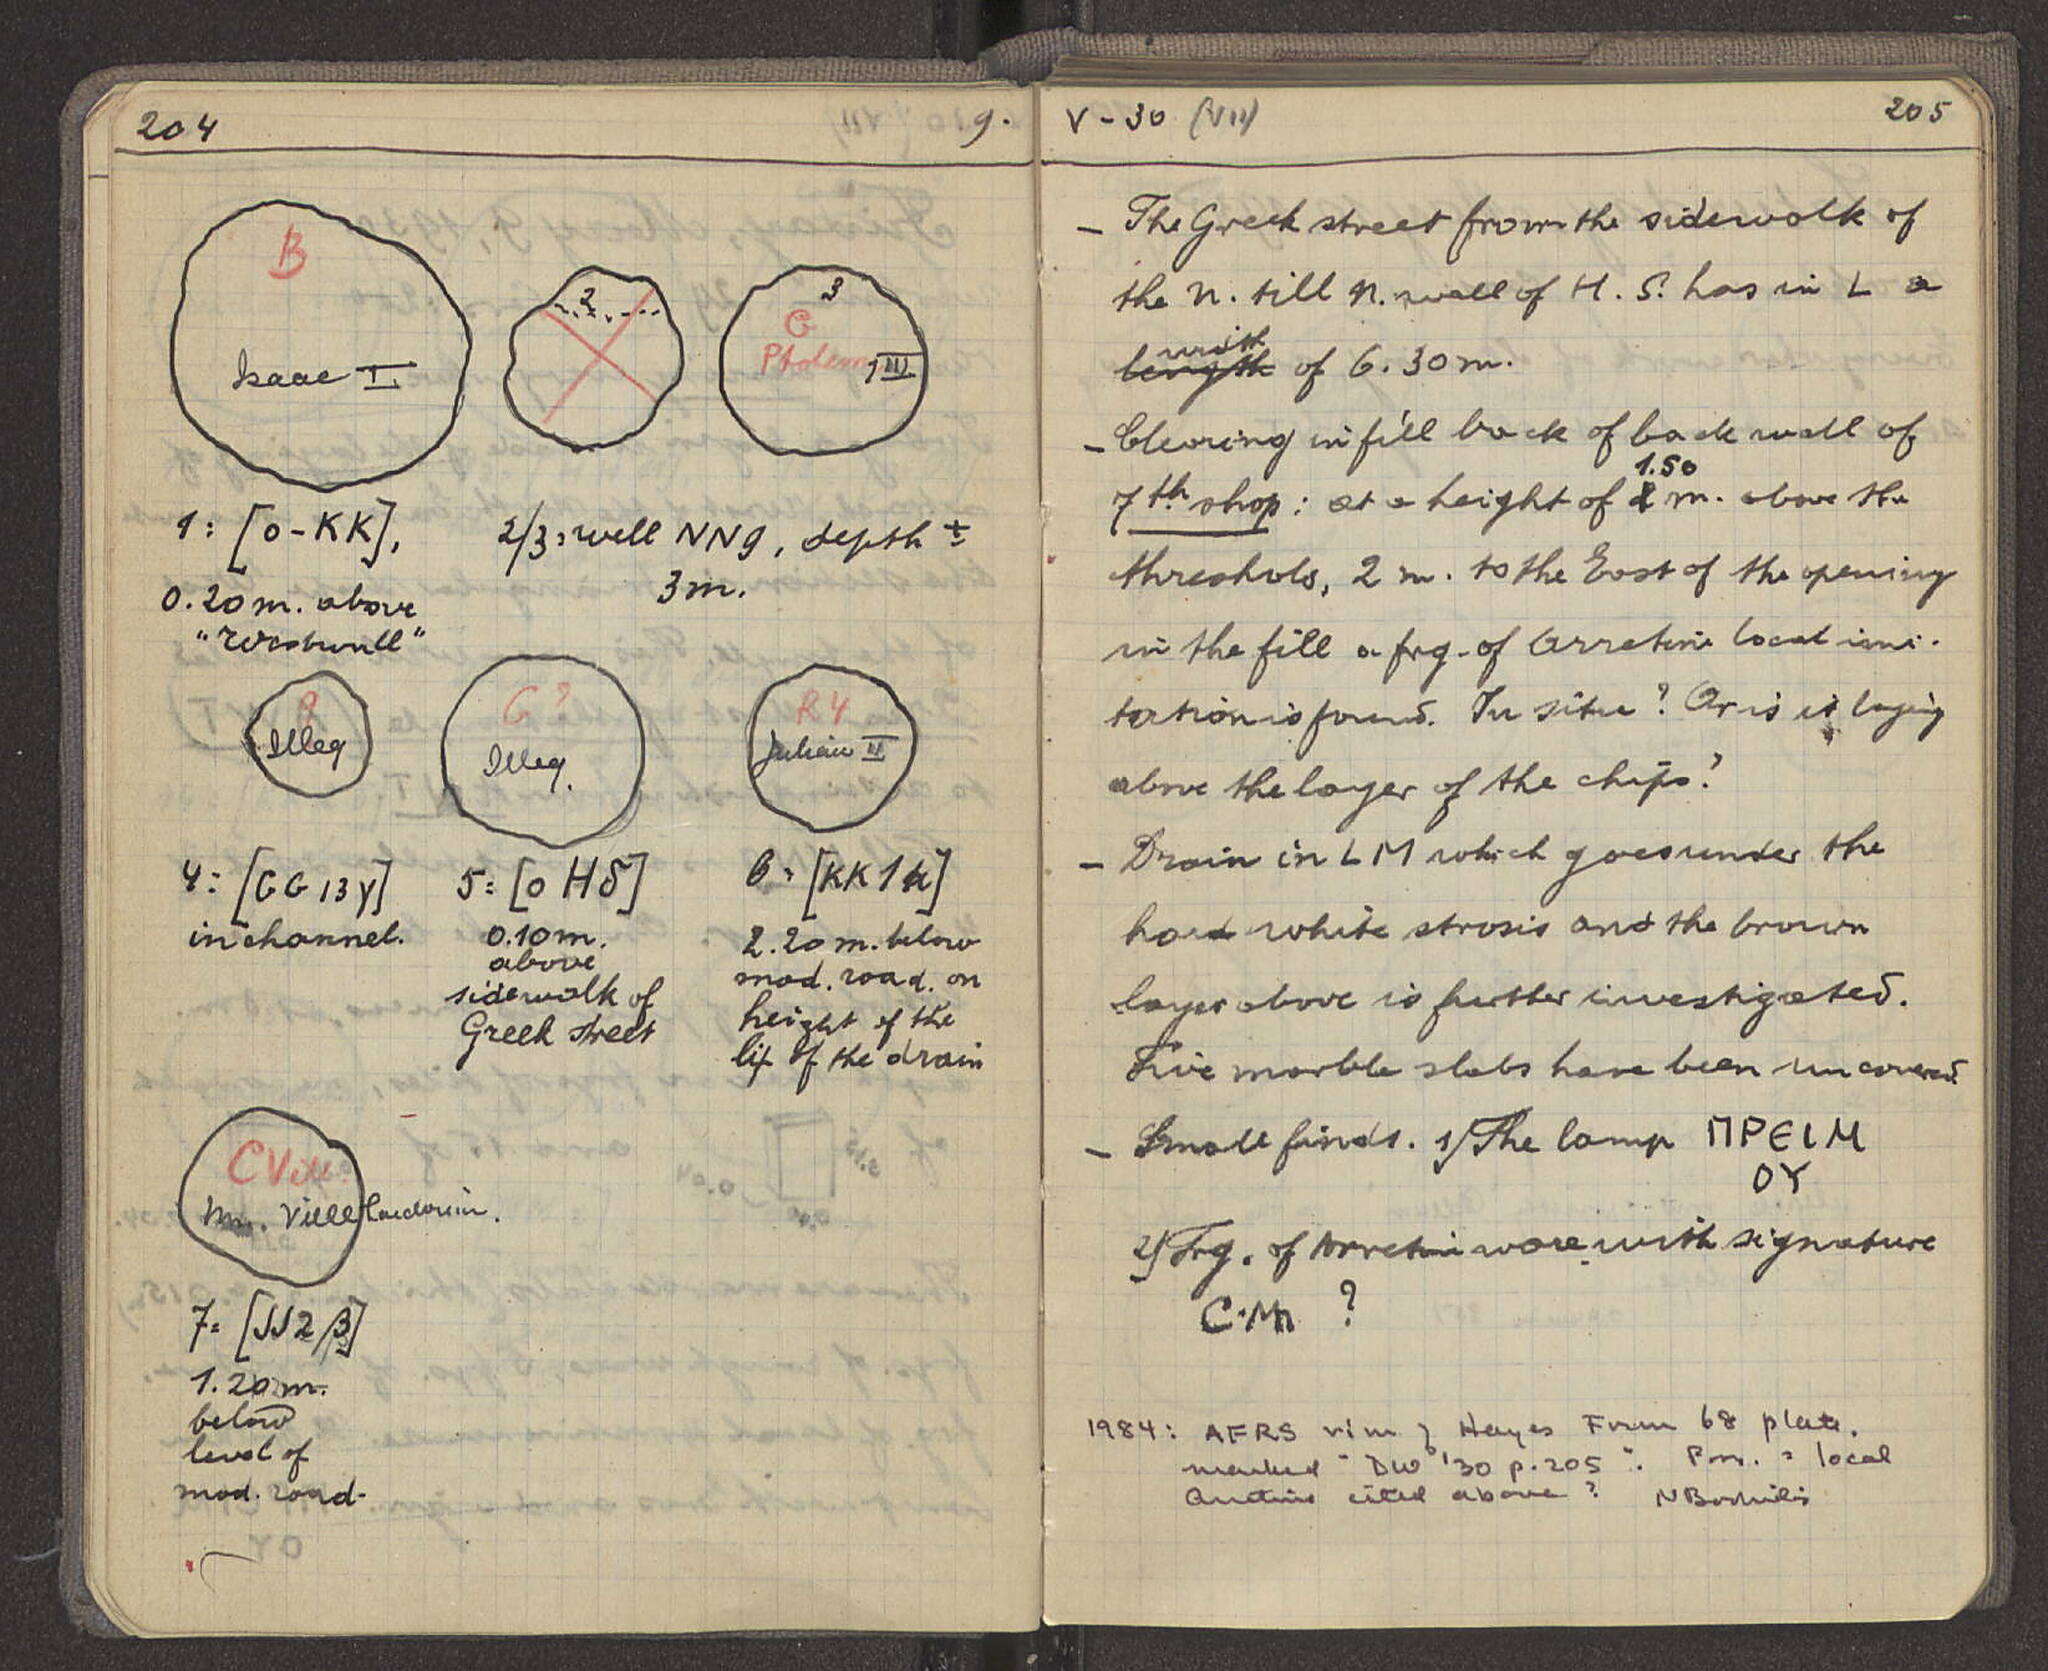 204 9.
B
Isaac I
2
3
G
Ptolem III
1: [O-KK],
0.20 m. above
"Westwall"
2/3: well NN9, depth ±
3m.
?
Illeg
G?
Illeg.
R4
Julian II
4: [GG 13 γ]
in channel.
5: [O H δ]
0.10 m.
above
sidewalk of
Greek street
6: [KK 1 κ]
2.20 m. below
mod. road. on
height of the
lip of the drain
C Vill.
Wm. Villehardouin.
7: [JJ2 β]
1.20 m.
below
level of
mod. road.
V-30 (VII) 205
- The Greek street from the sidewalk of
the N. till N. wall of H. S. has in L a
width
length of 6.30 m.
- Clearing in fill back of back wall of
1.50
7th shop: at a height of 2 m. above the
thresholds, 2 m. to the East of the opening
in the fill a frg. of Arretine local imi-
tation is found. In situ? Or is it laying
above the layer of the chips?
- Drain in LM which goes under the
hard white strosis and the brown
layer above is further investigated.
Five marble slabs have been uncovered.
- Small finds. 1/ The lamp ΠΡΕΙΜ
ΟΥ
2/ Frg. of Arretine ware with signature
C·Mn ?
1984: AFRS rim of Hayes Form 68 plate.
marked "DW '30 p.205". Poss. = local
Arretine cited above? N Bookidis